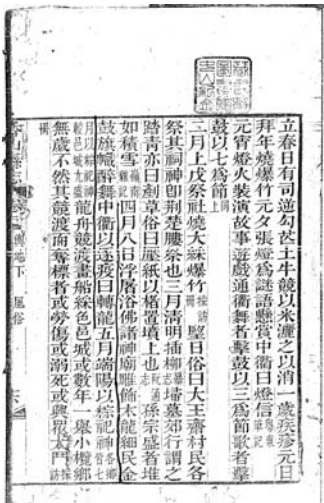 立春日有司迎勾芒土牛競以米灑之以消一歲疾疹元日
拜年燒爆竹元夕張燈爲謎語懸賞中衢曰燈信粵東筆記
元宵燈火裝演故事遊戲通衢舞者擊鼓以三爲節歌者擊
鼓以七爲節同上
二月上戊祭社燒大爆竹採訪 翌日俗曰大王齋村民各
祭其祠神卽荆楚膢祭也三月清明插柳墓郊行謂之
踏青亦曰劃草俗曰壓紙以楮置墳上也 孫宗盛者堆
如積雪嶺南雜記四月八日浮屠浴佛諸神廟雕飾木龍細民金
鼓旗幟醉舞中衢以逐疫曰轉龍五月端陽以粽祀神
月以粽祀神 龍舟競渡畫船綵色邑城或數年一舉小欖鄉
無歲不然其競渡而奪標者或勞傷或溺死或興眾大鬥採訪
冊
香山縣志 輿地下 風俗